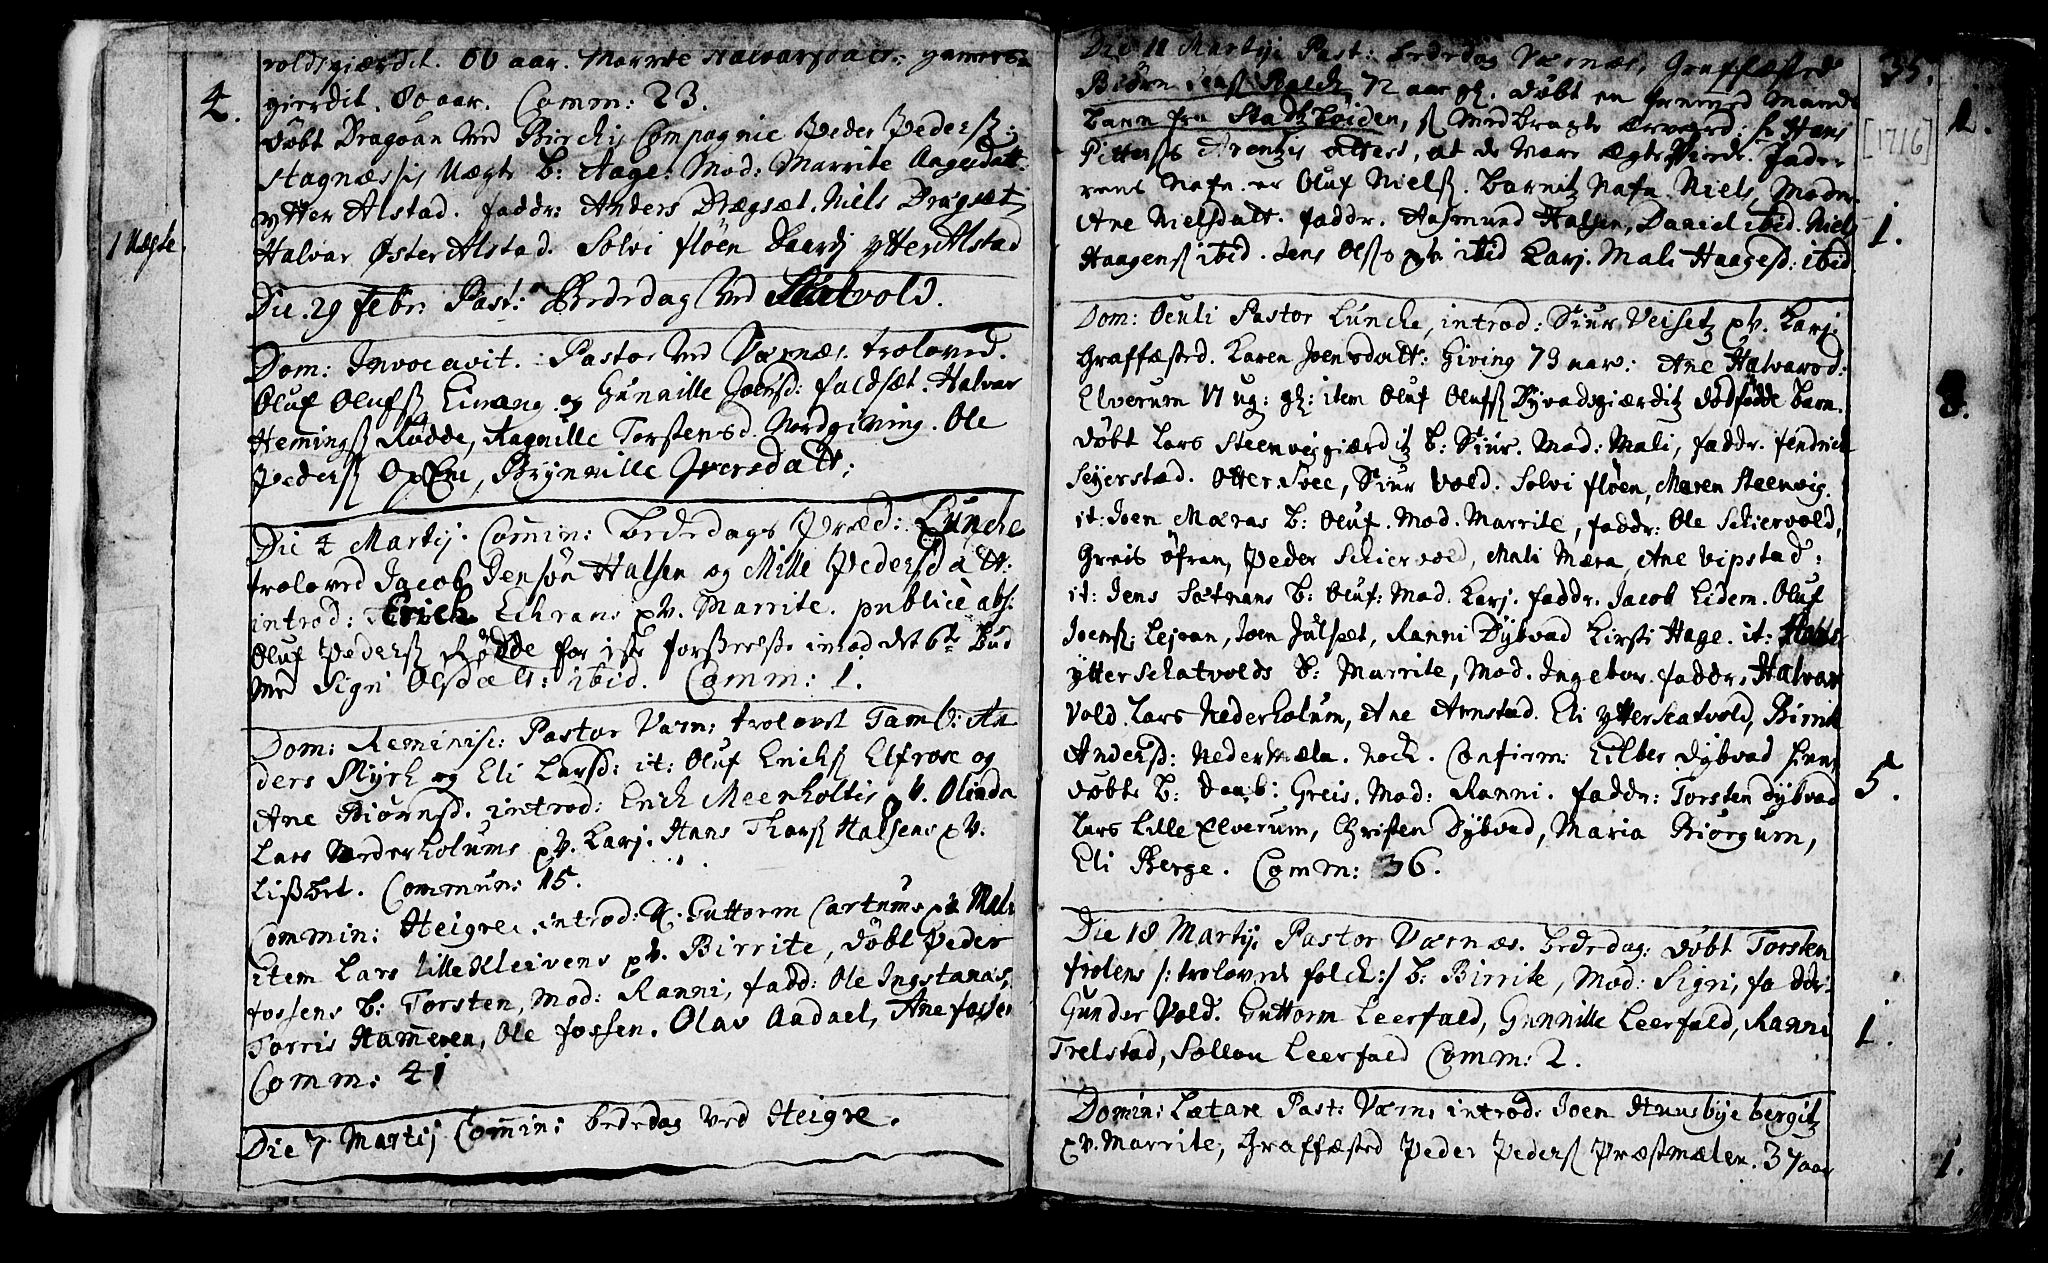 roldsgiærdet. 60 aar. Marrite Halvarsdatt:
gierdit. 80 aar. Comm: 23.
4.
døbt Dragoun ved Birchis Compagnie Peder Pederß
Stagnæssis Uægte B: Aage: Mod: Marrite Aagesdatt:
ytter Alstad. faddr: Anders Drægset. Niels Dragset,
1 Uægte.
Halvar Øster Alstad. Solvi fløen Baard ytter Alstad
Die. 29 febr: Past: Bededag ved Skatvold.
Dom: Invocavit. Pastor ved Værnæs. troloved.
Oluf Olufß Einang. og Gunnille Joensd: faldsæt. Halvar
Hemingß Rødde, Ragnille Torstensd. Nordgiving. Ole
Pederß Opem, Brynnille Iversdatt:
Die 4 Martij. Comin: Bededags Præd: Lunche
troloved Jacob Jensøn Halsen og Mille Pedersdatt:
introd: Erich Echrans pv. Marrite. publicè abs:
Oluf Pederß Rødde for 1ste forseelse imod det 6te Bud
med Signi Olsdatt: ibid. Comm: 1.
Dom: Reminisc: Pastor Værn: troloved Tamb: An
ders Myrh og Eli Larsd: it: Oluf Erichß Elfrose og
Ane Biørnsd. introd: Erich Meenholtis pv. Olinda
Lars Nederholums pv. Karj. Hans Thorß Halsens pv.
Lißbet. Commun: 15.
Commin: Heigre. introd: Guttorm Cartums pv Mali
item Lars lille Kleivens pv. Birrite, døbt Peder
fossens B: Torsten, Mod: Ranni, fadd: Ole Ingstanas,
Torris Hameren, Ole fossen. Olav Aadael, Ane fossen
Comm: 41
Die 7 Martij Comin: bededag ved Heigre.
Die 11 Martij Past: Bededag Værnæs, Graffæsted
35.
Biørn Jenß Balch 72 aar gl. døbt en
[1716]
1.
Barn fra Stadtzbøiden, medbragte
Pitterß Arentzis attest, at de vare ægte folk. fade
rens Nafn er Oluf Nielß. Barnitz Nafn Niels, Moder
Ane Nielsdatt. faddr. Aasmund Halsen, Daniel ibid. Niels
1.
Haagenß ibid. Jens Olß pv. ibid Karj. Mali Haagesd: ibid.
Dom: Oculi Pastor Lunche, introd: Siur Veisetz pv. Karj.
Graffæsted. Karen Joensdatt: Giving 73 aar: Ane Halvarsd:
3.
Elverum 17 ug: gl: item Oluf Olufß Dyvadsgiærditz dødfødde barn.
døbt Lars Steenvigsgiærditz B: Siur. Mod: Mali, faddr. fendrich
Seyerstad. Otter Svee, Siur Vold. Solvi fløen, Maren Steenvig.
it: Joen Mæras B: Oluf. Mod. Marrite, faddr: Ole Schiervold,
Greis øfran, Peder Schiervold, Mali Mæra, Ane Vipstad.
it: Jens Sætnans B: Oluf: Mod. Karj. faddr. Jacob Eidem. Oluf
Joenß: Lejran, Joen Julset, Ranni Dybvad Kirsti Hage. it:
ytter Schatvolds B: Marrite, Mod. Ingebor. faddr. Halvar
Vold. Lars Nederholum, Ane Arnstad. Eli ytterscatvold, Birrite
Andersd: Nedermæla. noch. Confirm: Eilber Dybvad hiemm
døbte B: Greis. Mod: Ranni. faddr: Torsten Dybvad
5.
Lars Lille Elverum, Christen Dybvad, Maria Biørgum,
Eli Berge. Comm: 36.
Die 18 Martij Pastor Værnæs. bededag: døbt Torsten
fiolens /: trolovede folck :/ B: Birrite, Mod: Signi, faddr:
Gunder Vold. Guttorm Leerfald, Gunnille Leerfald, Ranni
1.
Trelstad, Sollou Leerfald Comm: 2.
Domin: Lætare Past: Værn: introd: Joen Huusbye bergitz
pv. Marrite, Graffæsted Peder Pederß Præstmælen. 37 aar
1.